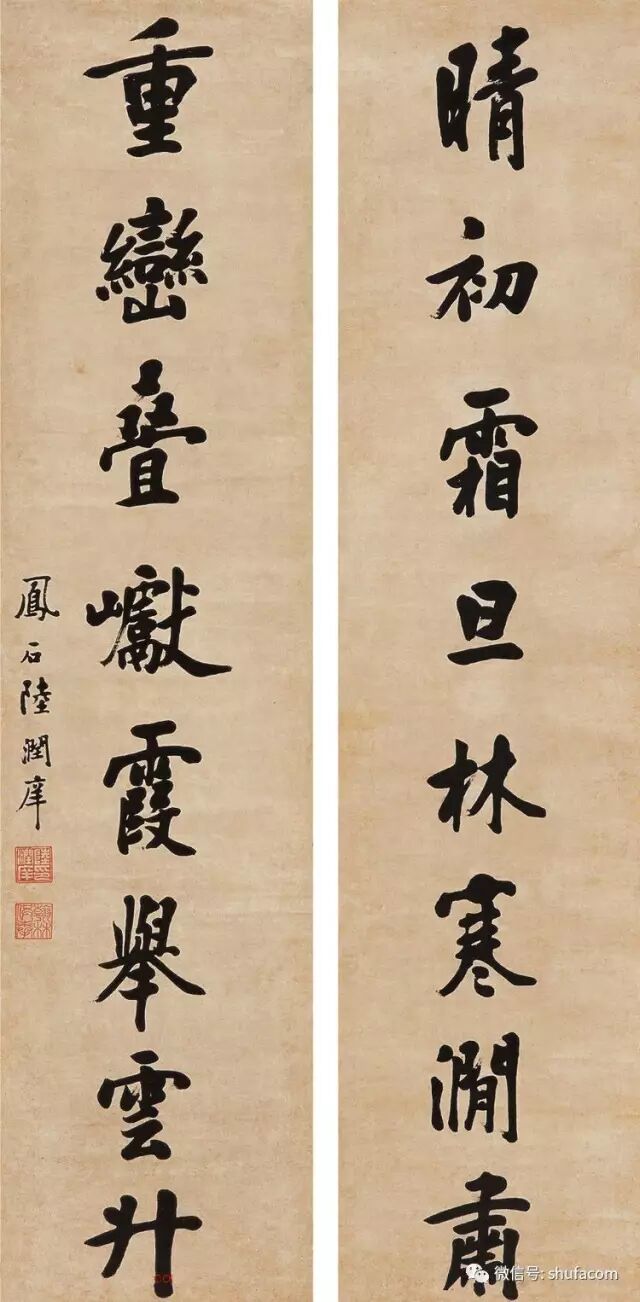 晴初霜旦林寒澗肅
重巒疊巘霞舉雲升
鳳石陸潤庠
微信号: shufacom